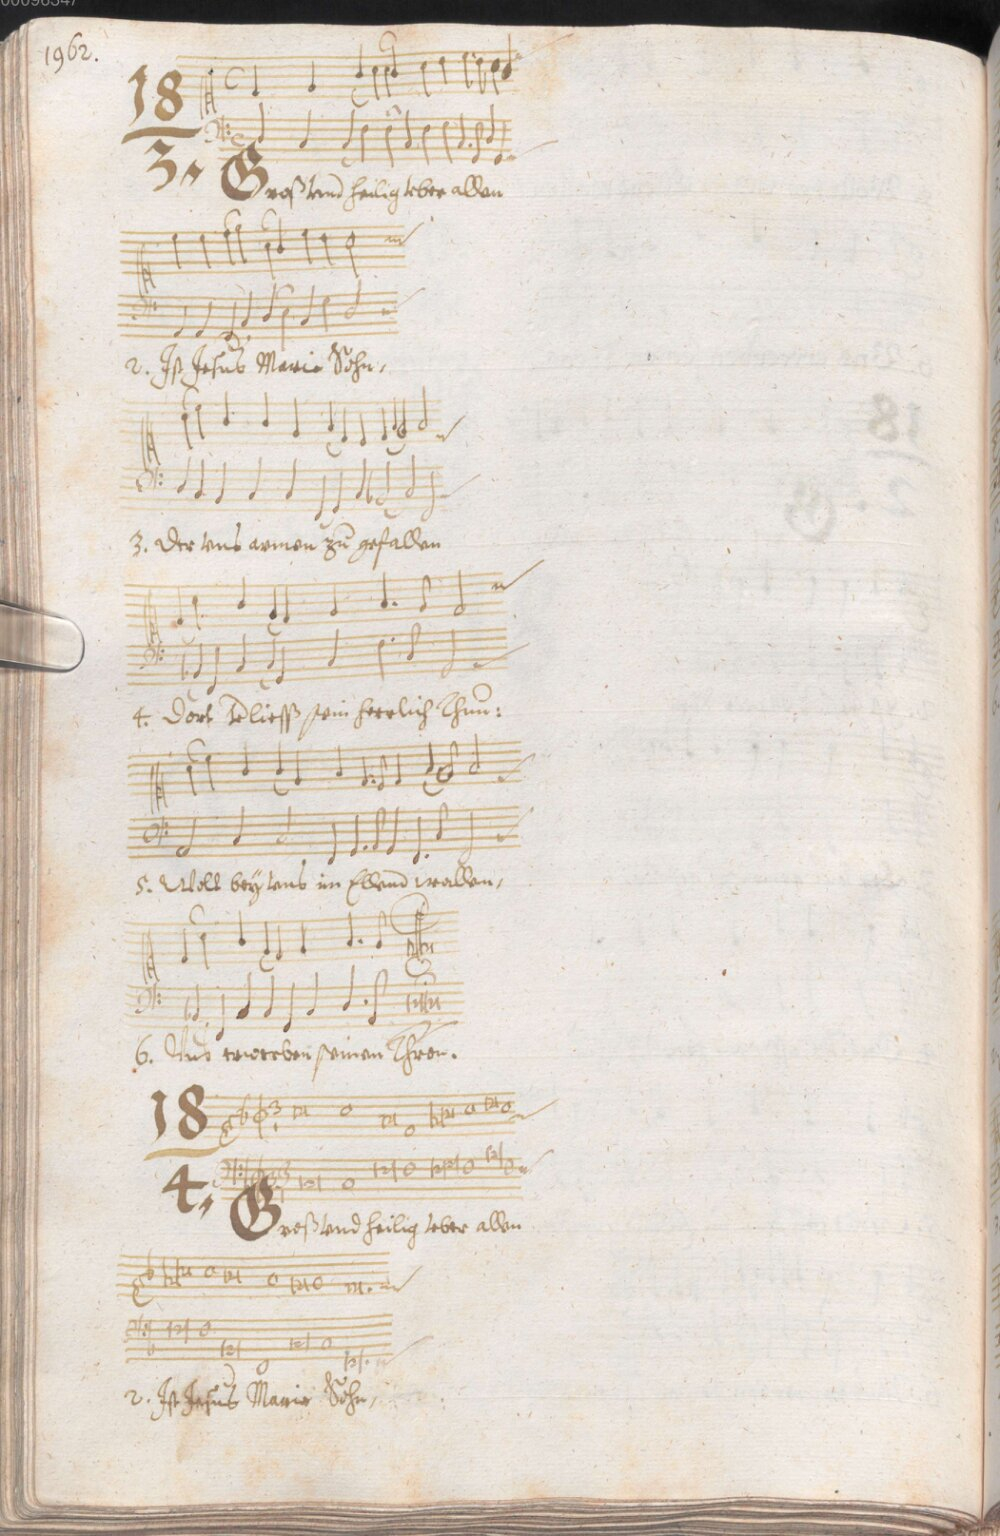 1962.
18
3.
Groß vnd heilig vber allen
2. Ist Jesus Marie Sohn,
3. Der vns armen zu gefallen
4. Dort verliess sein herrlich Thun:
5. Woll bey vns im Ellend wallen,
6. Vns erwerben seinen Thron.
18
4.
Groß vnd heilig vber allen
2. Ist Jesus Marie Sohn,